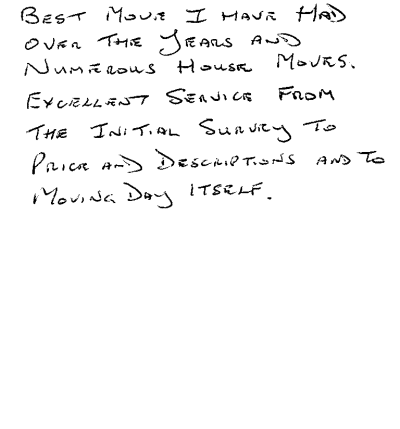 BEST MOVE I HAVE HAD
OVER THE YEARS AND
NUMEROUS HOUSE MOVES.
EXCELLENT SERVICE FROM
THE INITIAL SURVEY TO
PRICE AND DESCRIPTIONS AND TO
MOVING DAY ITSELF.